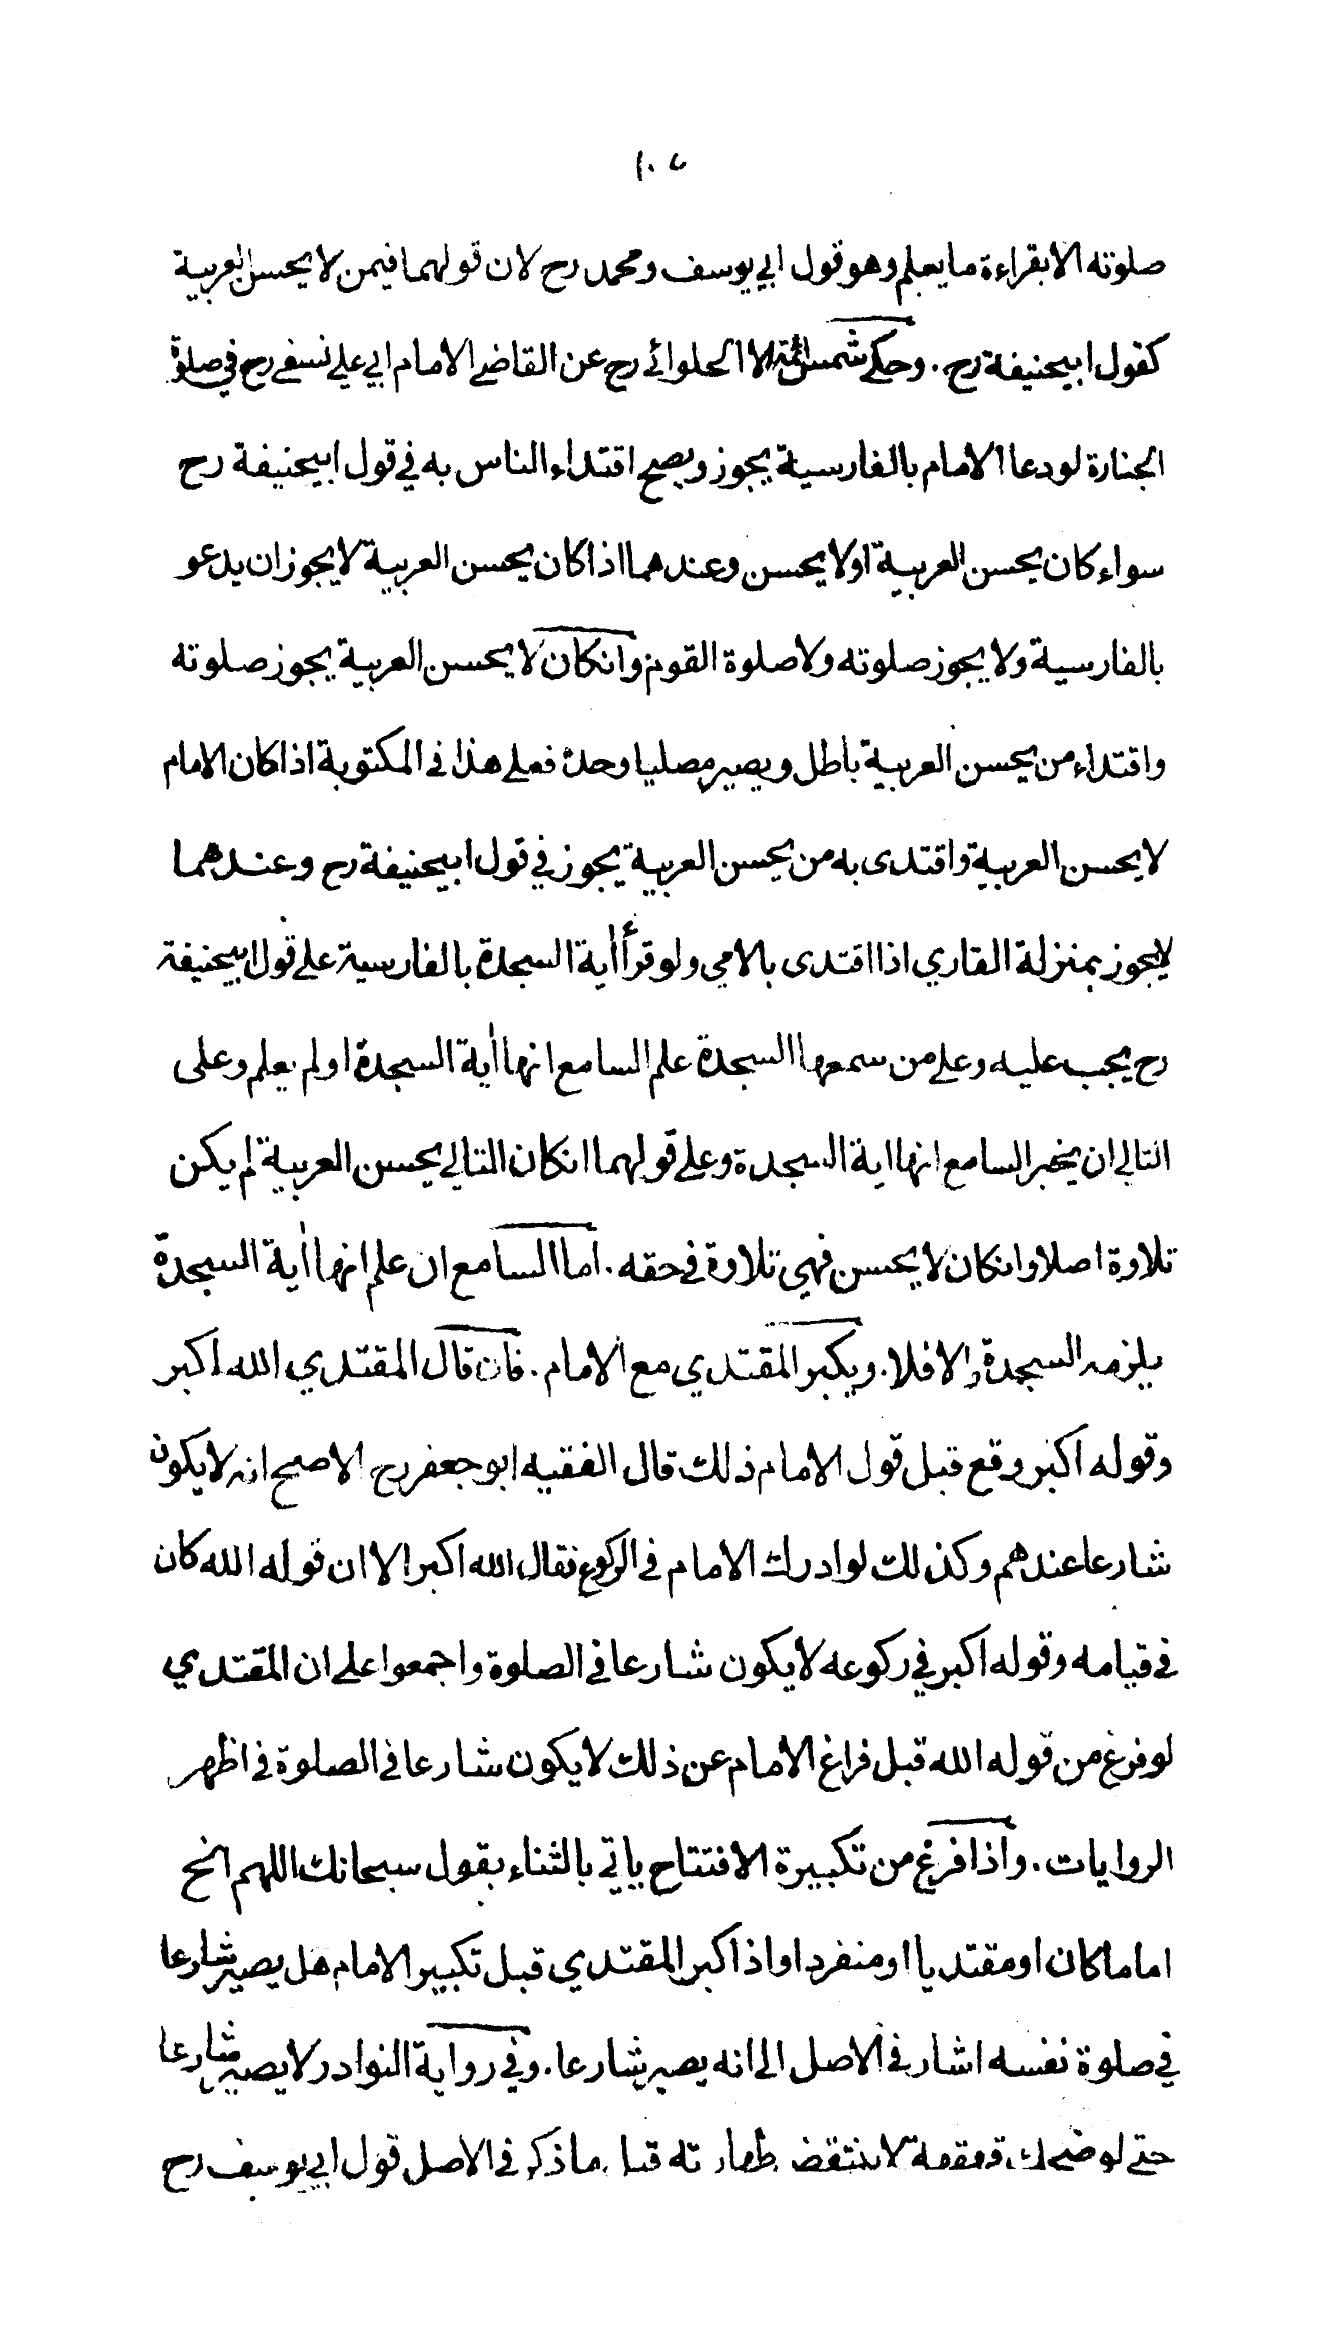 صلوته الا بقراءة ما يعلم وهو قول ابي يوسف ومحمد رح لان قولهما فيمن لا يحسن العربية
كقول ابيحنيفة رح . وحكى شمس الائمة الحلوائي رح عن القاضي الامام ابي علي نسفي رح في صلوة
الجنازة لو دعا الامام بالفارسية يجوز ويصح اقتداء الناس به في قول ابيحنيفة رح
سواء كان يحسن العربية اولا يحسن وعندهما اذا كان يحسن العربية لا يجوز ان يدعو
بالفارسية ولا يجوز صلوته ولا صلوة القوم وانكان لا يحسن العربية يجوز صلوته
واقتداء من يحسن العربية باطل ويصير مصليا وحده فعلى هذا في المكتوبة اذا كان الامام
لا يحسن العربية واقتدى به من يحسن العربية يجوز في قول ابيحنيفة رح وعندهما
لا يجوز بمنزلة القاري اذا اقتدى بالامي ولو قرأ أية السجدة بالفارسية على قول ابيحنيفة
رح يجب عليه وعلى من سمعها السجدة علم السامع انها أية السجدة او لم يعلم وعلى
التالي ان يخبر السامع انها اية السجدة وعلى قولهما انكان التالي يحسن العربية لم يكن
تلاوة اصلا وانكان لا يحسن فهي تلاوة في حقه . اما السامع ان علم انها أية السجدة
يلزمه السجدة والا فلا . ويكبر المقتدي مع الامام . فان قال المقتدي الله اكبر
وقوله اكبر وقع قبل قول الامام ذلك قال الفقيه ابو جعفر رح الاصح انه لا يكون
شارعا عندهم وكذلك لو ادرك الامام في الركوع فقال الله اكبر الا ان قوله الله كان
في قيامه وقوله اكبر في ركوعه لا يكون شارعا في الصلوة واجمعوا على ان المقتدي
لو فرغ من قوله الله قبل فراغ الامام عن ذلك لا يكون شارعا في الصلوة في اظهر
الروايات . واذا فرغ من تكبيرة الافتتاح ياتي بالثناء يقول سبحانك اللهم الخ
اماما كان او مقتديا او منفردا واذا كبر المقتدي قبل تكبير الامام هل يصير شارعا
في صلوة نفسه اشار في الاصل الى انه يصير شارعا . وفي رواية النوادر لا يصير شارعا
حتى لو ضحك قهقهة لا ينتقض طهارته قيل ما ذكر في الاصل قول ابي يوسف رح